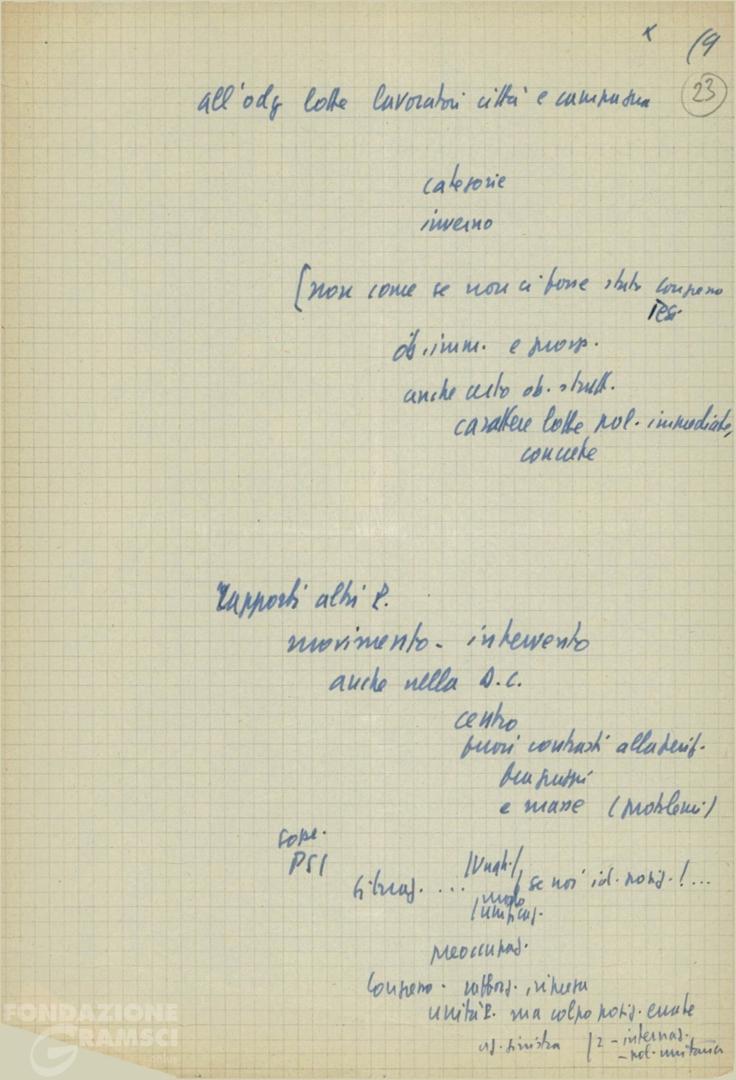 x 19
23
all'odg lotte lavoratori città e campagna
categorie
inverno
(non come se non ci fosse stato congresso
ob. imm. e prosp.
anche certo ob. strutt.
carattere lotte pol. immediate,
concrete
Rapporti altri P.
movimento - intervento
anche nella D.C.
centro
fuori contrasti alla perif.
fra gruppi
e masse (problemi)
sopr.
PSI
situaz. ... se noi id. posiz.! ...
modo
unificaz.
preoccupaz.
Congresso - rafforz. ripresa
unità P. ma colpo posiz. errate
sinistra 2 - internaz.
- pol. unitaria
FONDAZIONE
GRAMSCI